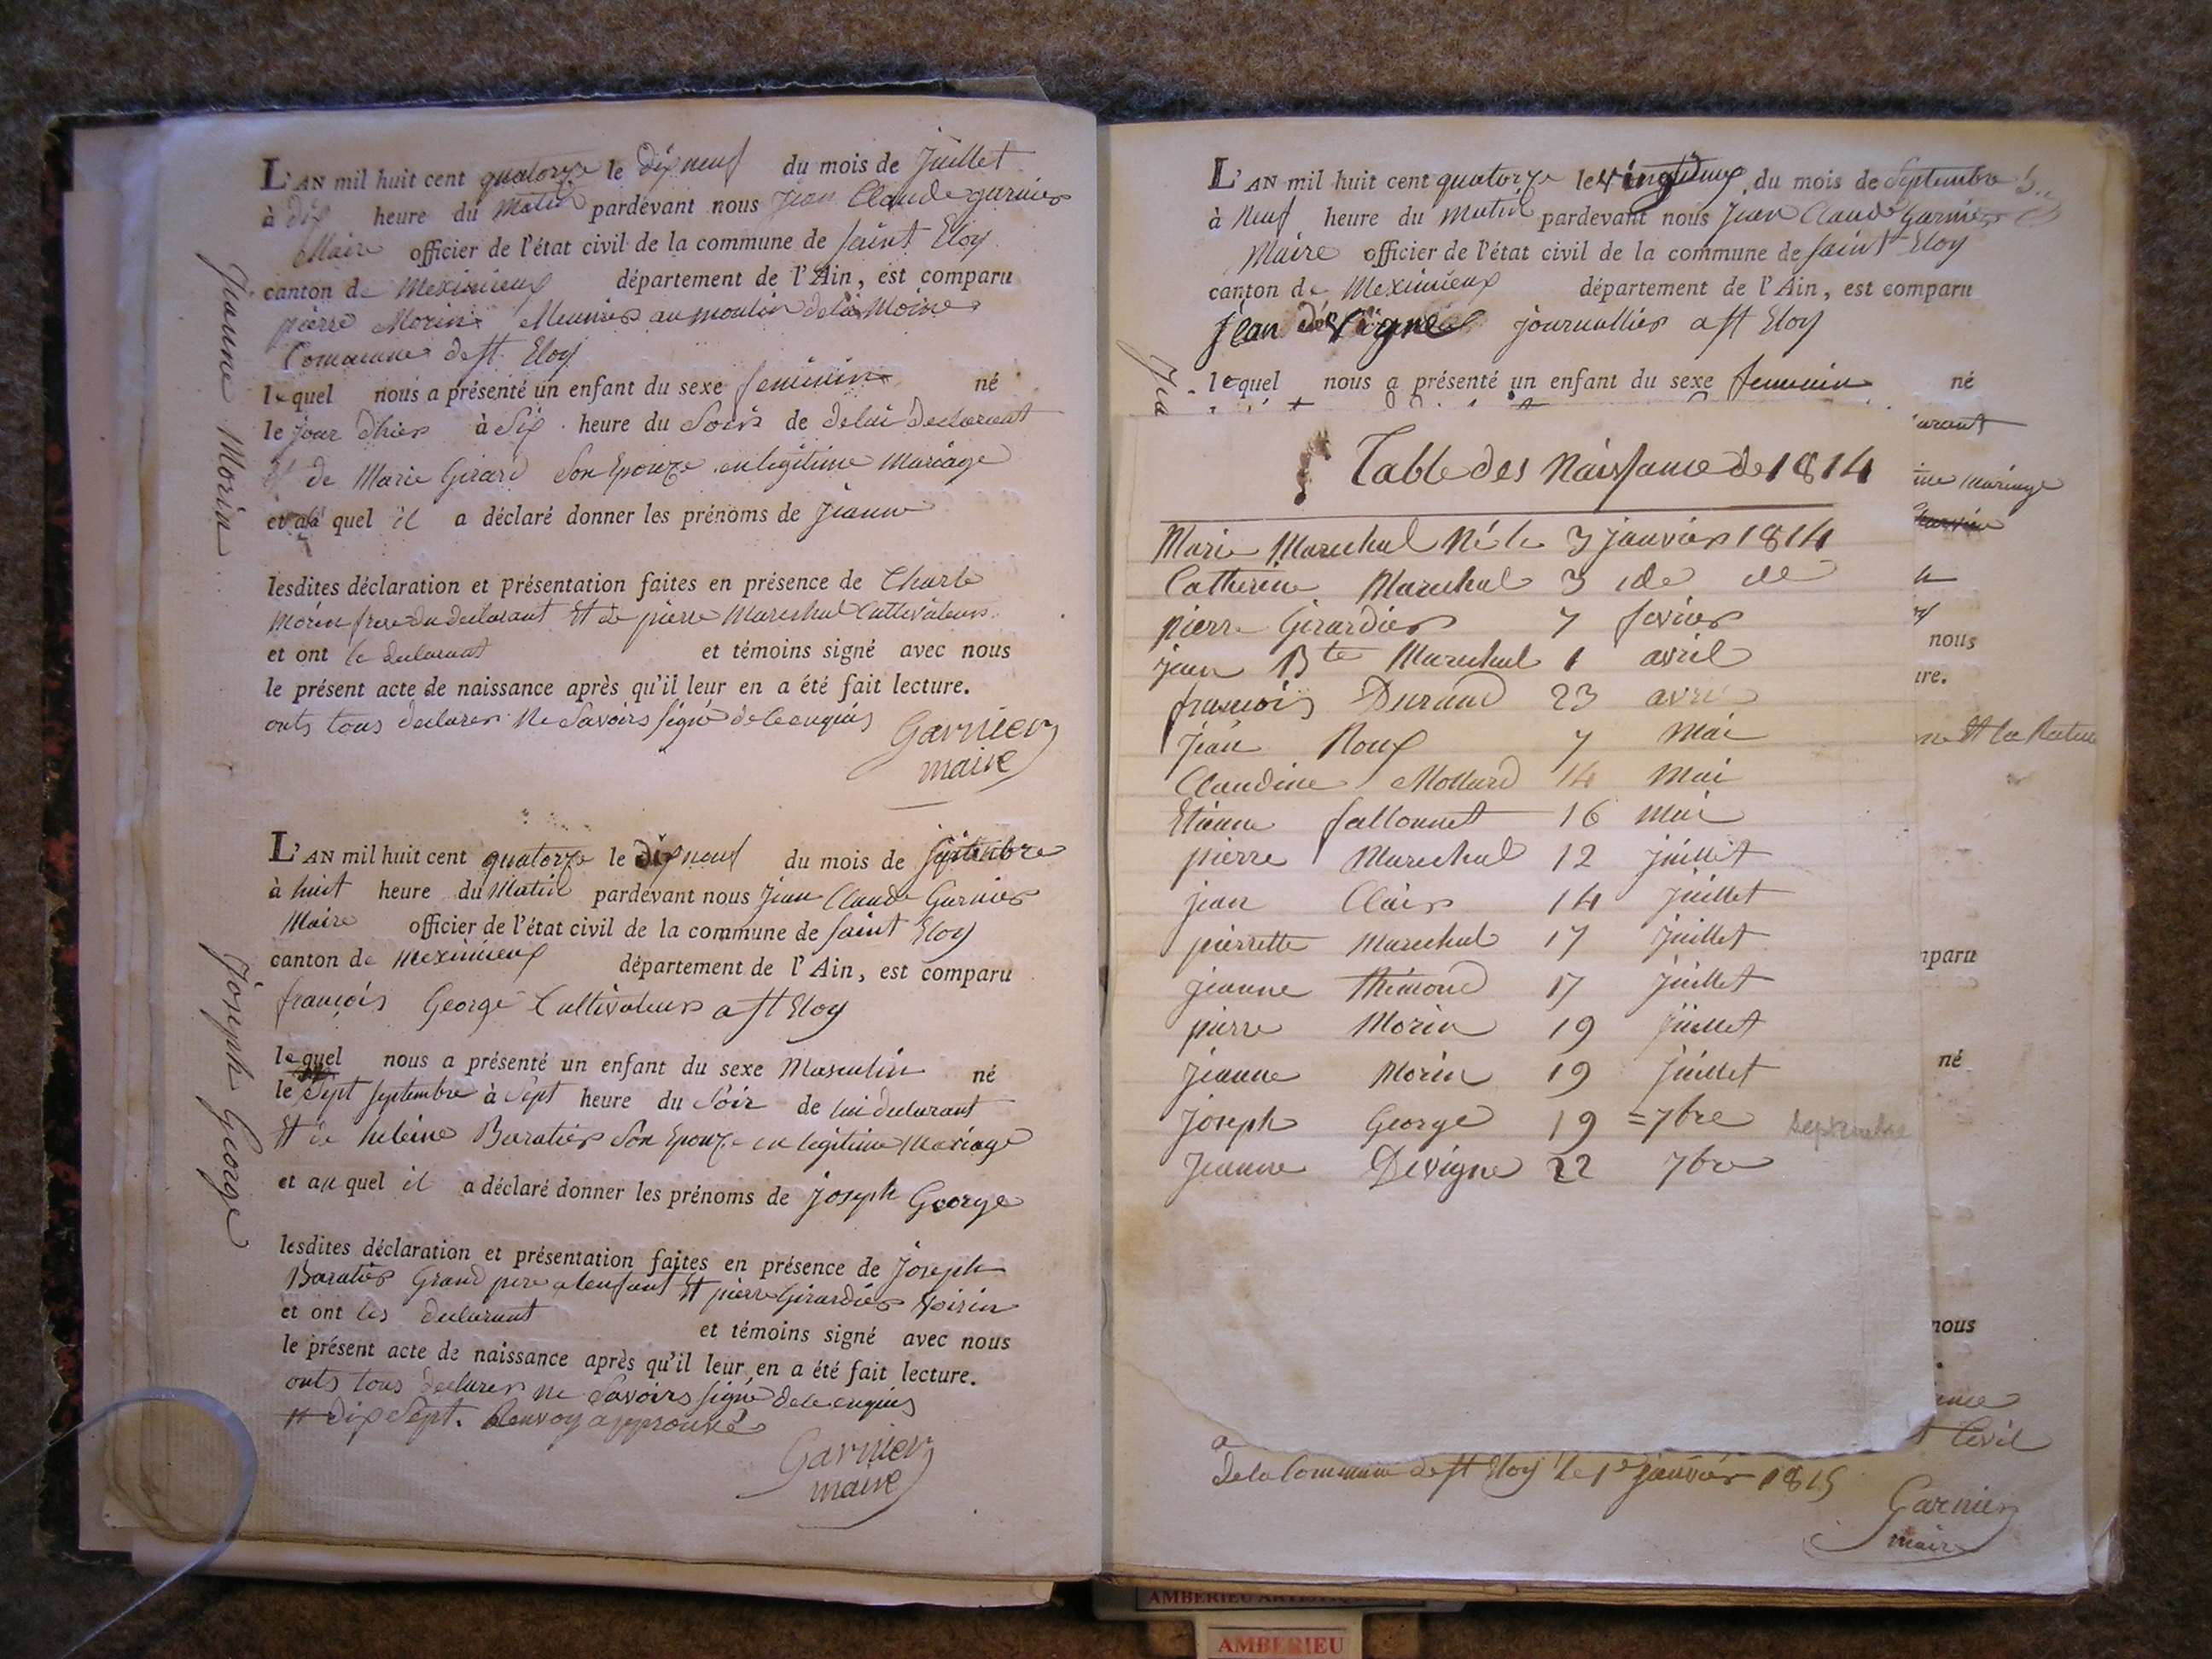 L'AN mil huit cent quatorze le dix neuf du mois de Juillet
à dix heure du Matin pardevant nous Jean Claude garnier
Maire officier de l'état civil de la commune de saint Eloy
canton de Meximieux département de l'Ain, est comparu
pierre Morin Meunier au moulin dela Moine
Commune de st. Eloy
lequel nous a présenté un enfant du sexe feminin né
le jour dhier à Six heure du Soir de delui declarant
et de Marie Girard Son Epouze en legitime Mariage
et a la quel il a déclaré donner les prénoms de Jeanne
Jeanne Morin
lesdites déclaration et présentation faites en présence de Charle
Morin frere du declarant Et de pierre Marechal Cultivateur
et ont le declarant et témoins signé avec nous
le présent acte de naissance après qu'il leur en a été fait lecture.
onts tous declarer Ne Savoirs signé de ce enquis
Garnier
maire
L'AN mil huit cent quatorze le dix neuf du mois de septembre
à huit heure du Matin pardevant nous Jean Claude Garnier
Maire officier de l'état civil de la commune de saint Eloy
canton de Meximieux département de l'Ain, est comparu
françois George Cultivateur a st Eloy
lequel nous a présenté un enfant du sexe Masculin né
le Sept septembre à Sept heure du Soir de lui declarant
Et de heleine Baratier Son Epouze en legitime Mariage
et au quel il a déclaré donner les prénoms de joseph George
Joseph George
lesdites déclaration et présentation faites en présence de Joseph
Baratier Grand pere a lenfant Et pierre Girardier Voisin
et ont les declarant et témoins signé avec nous
le présent acte de naissance après qu'il leur en a été fait lecture.
onts tous declarer ne Savoirs signé de ce enquis
dix Sept. Renvoy approuvé
Garnier
maire
L'AN mil huit cent quatorze le vingt deux du mois de Septembre
à Neuf heure du Matin pardevant nous Jean Claude Garnier
Maire officier de l'état civil de la commune de saint Eloy
canton de Meximieux département de l'Ain, est comparu
Jean devigne journallier a st Eloy
lequel nous a présenté un enfant du sexe feminin né
arant
Table des Naissance de 1814
ime mariage
Marie Marechal Né le 3 janvier 1814
Catherine Marechal 3 ide de
pierre Girardier 7 fevrier
nous
jean Bte Marechal 1 avril
re.
francois Durand 23 avri
Jean Roux 7 Mai
ne Et la Rature
Claudine Mollard 14 Mai
Etienne fallonnet 16 Mai
pierre Marechal 12 Juillet
jean Clair 14 Juillet
pierrette Marechal 17 Juillet
mparu
jeanne thimond 17 Juillet
pierre Morin 19 Juillet
né
Jeanne Morin 19 Juillet
Joseph George 19 = 7bre septembre
Jeanne Devigne 22 7bre
nous
Civil
dela Commune de st Eloy le 1er janvier 1815
Garnier
maire
AMBERIEU
AMBERIEU